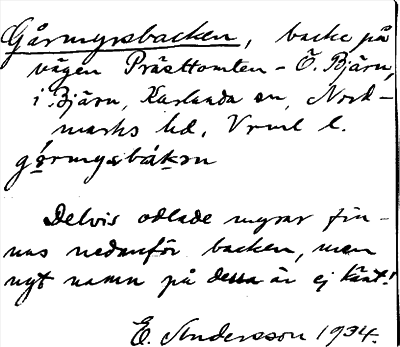 Gårmyrsbacken, backe på
vägen Prästtomten - Ö. Bjärn,
i Bjärn, Karlanda sn, Nord-
marks hd, Vrml l.
gårmyṣbákən
Delvis odlade myrar fin-
nas nedanför backen, men
nyt namn på dessa är ej känt!
E. Andersson 1934.